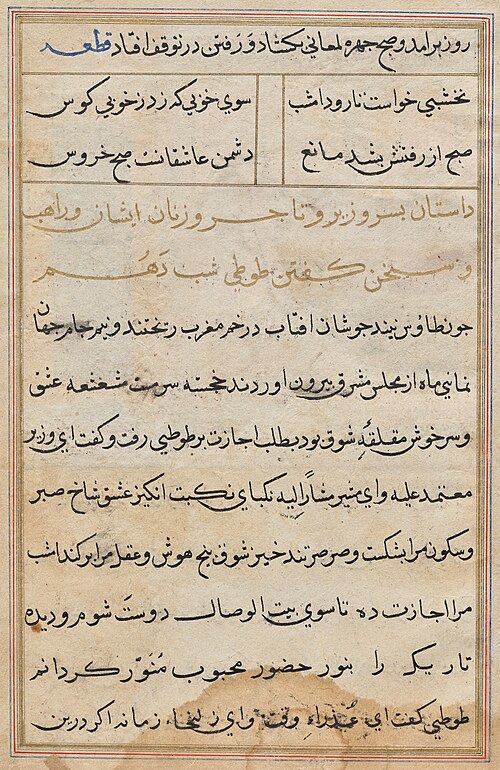 روز برامد و صبح چهره لمعانی بکشاد و رفتن در توقف افتاد قطعه
نخشبی خواست تا رود امشب سوی خوبی که زد ز خوبی کوس
صبح از رفتنش بشد مانع دشمن عاشقانست صبح خروس
داستان پسر وزیر و تاجر و زنان ایشان و راهب
و سخن کفتن طوطی شب دهم
چون طاوس نیند جوشان افتاب در خم مغرب ریختند و نیم جام جهان
نمایی ماه از مجلس مشرق بیرون اوردند خجسته سرمست مشعشعه عشق
و سرخوش شوق بود بطلب اجازت بر طوطی رفت و کفت ای وزیر
معتمد علیه و ای مشیر مشارا الیه نکبای نکبت انکیز عشق شاخ صبر
و سکون مرا بشکست و صرصر تند خیز شوق بیخ هوش و عقل مرا برکند امشب
مرا اجازت ده تا سوی بیت الوصال دوست شوم و دیده
تاریک را بنور حضور محبوب منور کردانم
طوطی کفت ای عذراء وقت و ای زلیخاء زمانه اکر درین